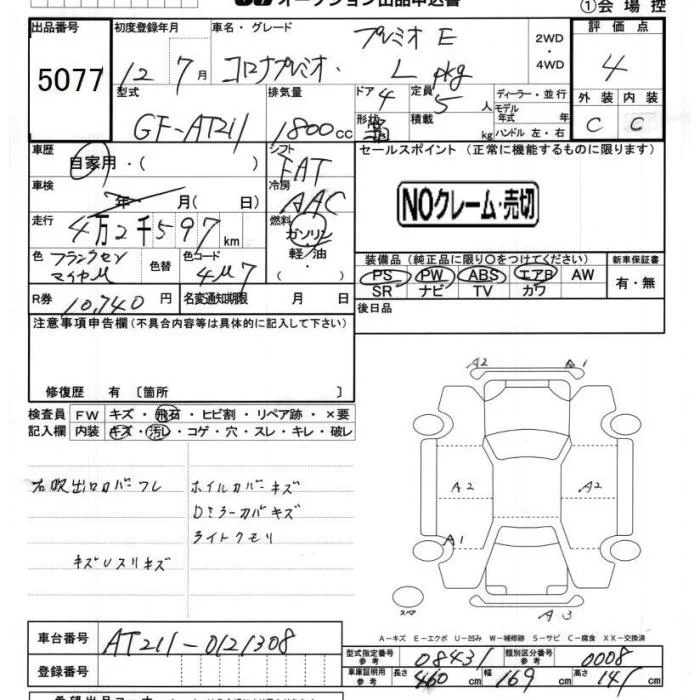 オークション出品申込書
①会場控
出品番号 初度登録年月 車名・グレード 評価点
5077 12 7月 コロナプレミオ・ プレミオ E L pkg 2WD・4WD 4
型式 排気量 ドア 定員 ディーラー・並行 外装 内装
GF-AT211 1800cc 4 5人 モデル年式 年 C C
形状 積載 kg ハンドル 左・右
車歴 自家用・( ) シフト FAT セールスポイント (正常に機能するものに限ります)
車検 年 月( 日) 冷房 AAC
NOクレーム・売切
走行 4万2千597km 燃料 ガソリン
軽/油・( )
色 色替 色コード 4M7
装備品(純正品に限り○をつけてください) 新車保証書
PS PW ABS エアB AW 有・無
SR ナビ TV カワ
R券 10,740円 名変通知期限 月 日 後日品
注意事項申告欄(不具合内容等は具体的に記入して下さい)
修復歴 有 〔箇所 〕
検査員 FW キズ・飛石・ヒビ割・リペア跡・×要
記入欄 内装 キズ・汚レ・コゲ・穴・スレ・キレ・破レ
右吹出口カバーワレ ホイルカバーキズ
Dミラーカバキズ
ライトクモリ
キズUスリキズ
A2
A2 A2
A1
A3
スペア
A-キズ E-エクボ U-凹み W-補修跡 S-サビ C-腐食 XX-交換済
車台番号 AT211-0121308
登録番号
型式指定番号 参考 08431 類別区分番号 参考 0008
車庫証明用 参考 長さ 460cm 幅 169cm 高さ 141cm
希望出品コーナー